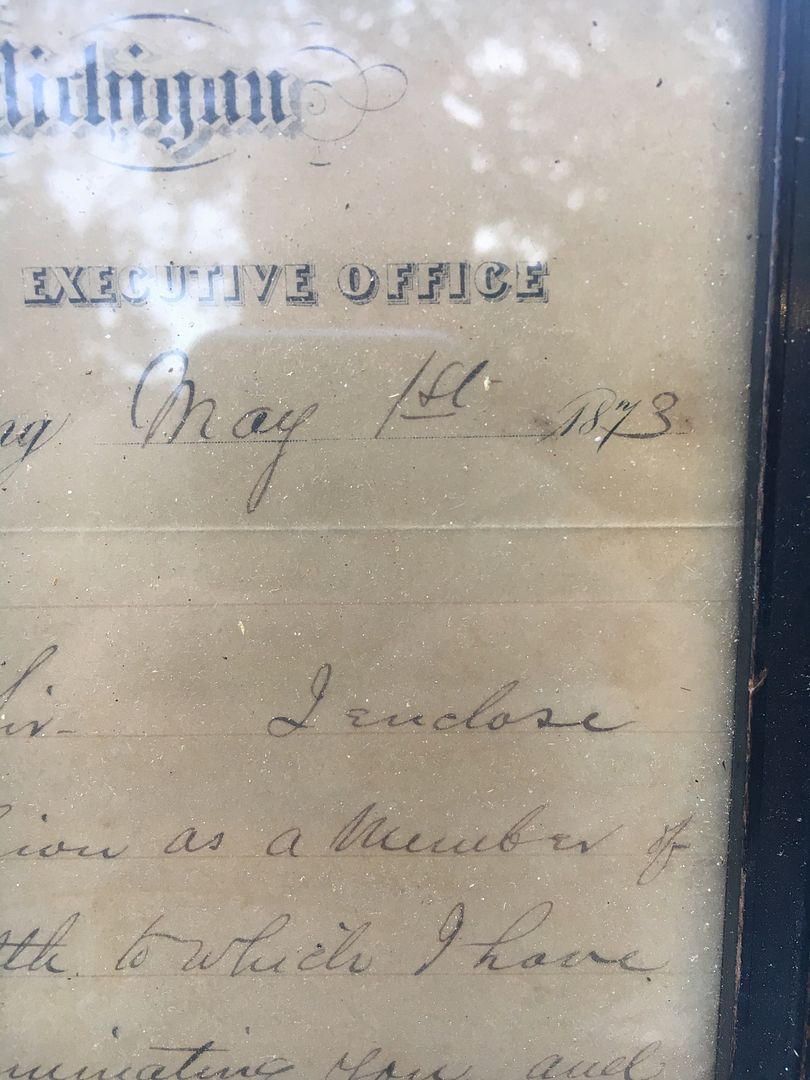 Michigan
EXECUTIVE OFFICE
ng May 1st 1873
Sir- I enclose
ion as a Member of
lth to which I have
minating you and